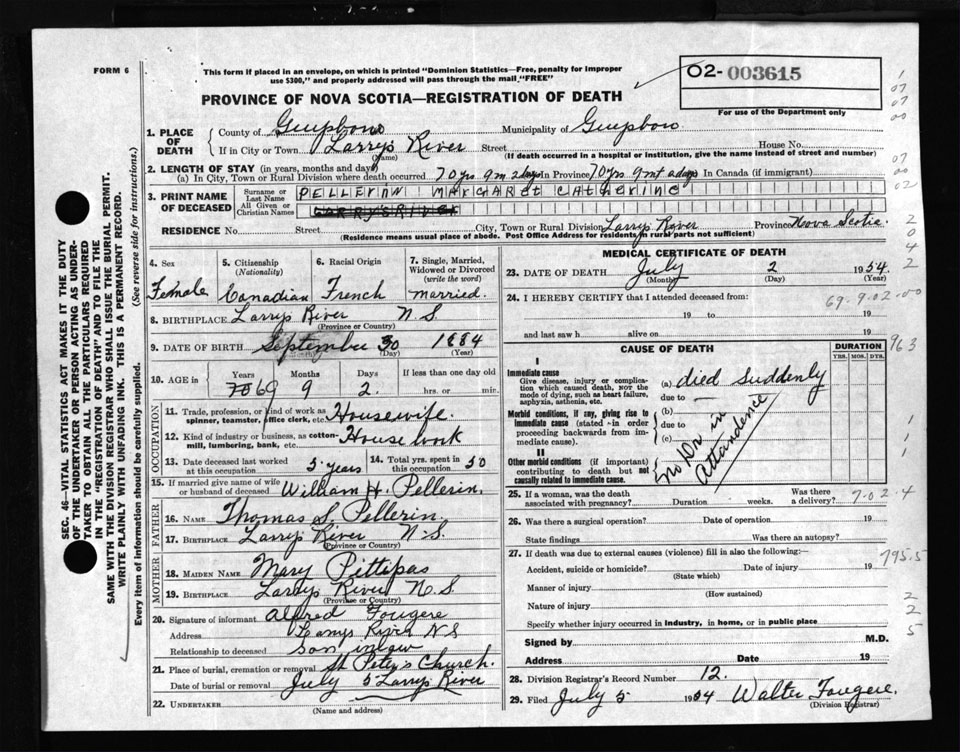 FORM 6
This form if placed in an envelope, on which is printed "Dominion Statistics—Free, penalty for improper
use $300," and properly addressed will pass through the mail "FREE"
O2-003615
For use of the Department only
PROVINCE OF NOVA SCOTIA—REGISTRATION OF DEATH
1. PLACE OF DEATH
County of Guysboro Municipality of Guysboro
If in City or Town Larrys River Street House No.
(Name) (If death occurred in a hospital or institution, give the name instead of street and number)
2. LENGTH OF STAY (in years, months and days)
(a) In City, Town or Rural Division where death occurred 70 yrs 9 m 2 days In Province 70 yrs 9 m 2 days In Canada (if immigrant)
3. PRINT NAME OF DECEASED
Surname or Last Name PELLERIN MARGARET CATHERINE
All Given or Christian Names LARRYS RIVER
RESIDENCE No. Street City, Town or Rural Division Larrys River Province Nova Scotia
(Residence means usual place of abode. Post Office Address for residents in rural parts not sufficient)
4. Sex Female
5. Citizenship (Nationality) Canadian
6. Racial Origin French
7. Single, Married, Widowed or Divorced (write the word) married.
8. BIRTHPLACE Larrys River N S
(Province or Country)
9. DATE OF BIRTH September 30 1884
(Month) (Day) (Year)
10. AGE in Years Months Days If less than one day old
70 69 9 2 hrs. or min.
OCCUPATION
11. Trade, profession, or kind of work as spinner, teamster, office clerk, etc. Housewife.
12. Kind of industry or business, as cotton-mill, lumbering, bank, etc. House work
13. Date deceased last worked at this occupation 5 years
14. Total yrs. spent in this occupation 50
15. If married give name of wife or husband of deceased William H. Pellerin.
FATHER
16. NAME Thomas S. Pellerin.
17. BIRTHPLACE Larrys River N-S.
(Province or Country)
MOTHER
18. MAIDEN NAME Mary Pittipas
19. BIRTHPLACE Larrys River N.S
(Province or Country)
20. Signature of informant Alfred Fougere
Address Larrys River N S
Relationship to deceased Son in law
21. Place of burial, cremation or removal St Peter's Church.
Date of burial or removal July 5 Larrys River
22. UNDERTAKER
(Name and address)
MEDICAL CERTIFICATE OF DEATH
23. DATE OF DEATH July 2 1954
(Month) (Day)
24. I HEREBY CERTIFY that I attended deceased from:
19 to 19
and last saw h alive on 19
CAUSE OF DEATH
DURATION
YRS. MOS. DYS.
I
Immediate cause
Give disease, injury or complication which caused death, NOT the mode of dying, such as heart failure, asphyxia, asthenia, etc.
(a) died Suddenly
due to —
Morbid conditions, if any, giving rise to immediate cause (stated in order proceeding backwards from immediate cause).
(b)
due to
(c)
II
Other morbid conditions (if important) contributing to death but not causally related to immediate cause.
no Dr in
attandence
25. If a woman, was the death associated with pregnancy? Duration weeks. Was there a delivery?
26. Was there a surgical operation? Date of operation 19
State findings Was there an autopsy?
27. If death was due to external causes (violence) fill in also the following:—
Accident, suicide or homicide? Date of injury 19
(State which)
Manner of injury
(How sustained)
Nature of injury
Specify whether injury occurred in Industry, in home, or in public place
Signed by M.D.
Address Date 19
28. Division Registrar's Record Number 12.
29. Filed July 5 1954 Walter Fougere.
(Division Registrar)
SEC. 46—VITAL STATISTICS ACT MAKES IT THE DUTY
OF THE UNDERTAKER OR PERSON ACTING AS UNDER-
TAKER TO OBTAIN ALL THE PARTICULARS REQUIRED
IN THE "REGISTRATION OF DEATH" AND TO FILE THE
SAME WITH THE DIVISION REGISTRAR WHO SHALL ISSUE THE BURIAL PERMIT.
WRITE PLAINLY WITH UNFADING INK. THIS IS A PERMANENT RECORD.
Every item of information should be carefully supplied. (See reverse side for instructions.)
69-9-02-00
963
7-02-4
795.5